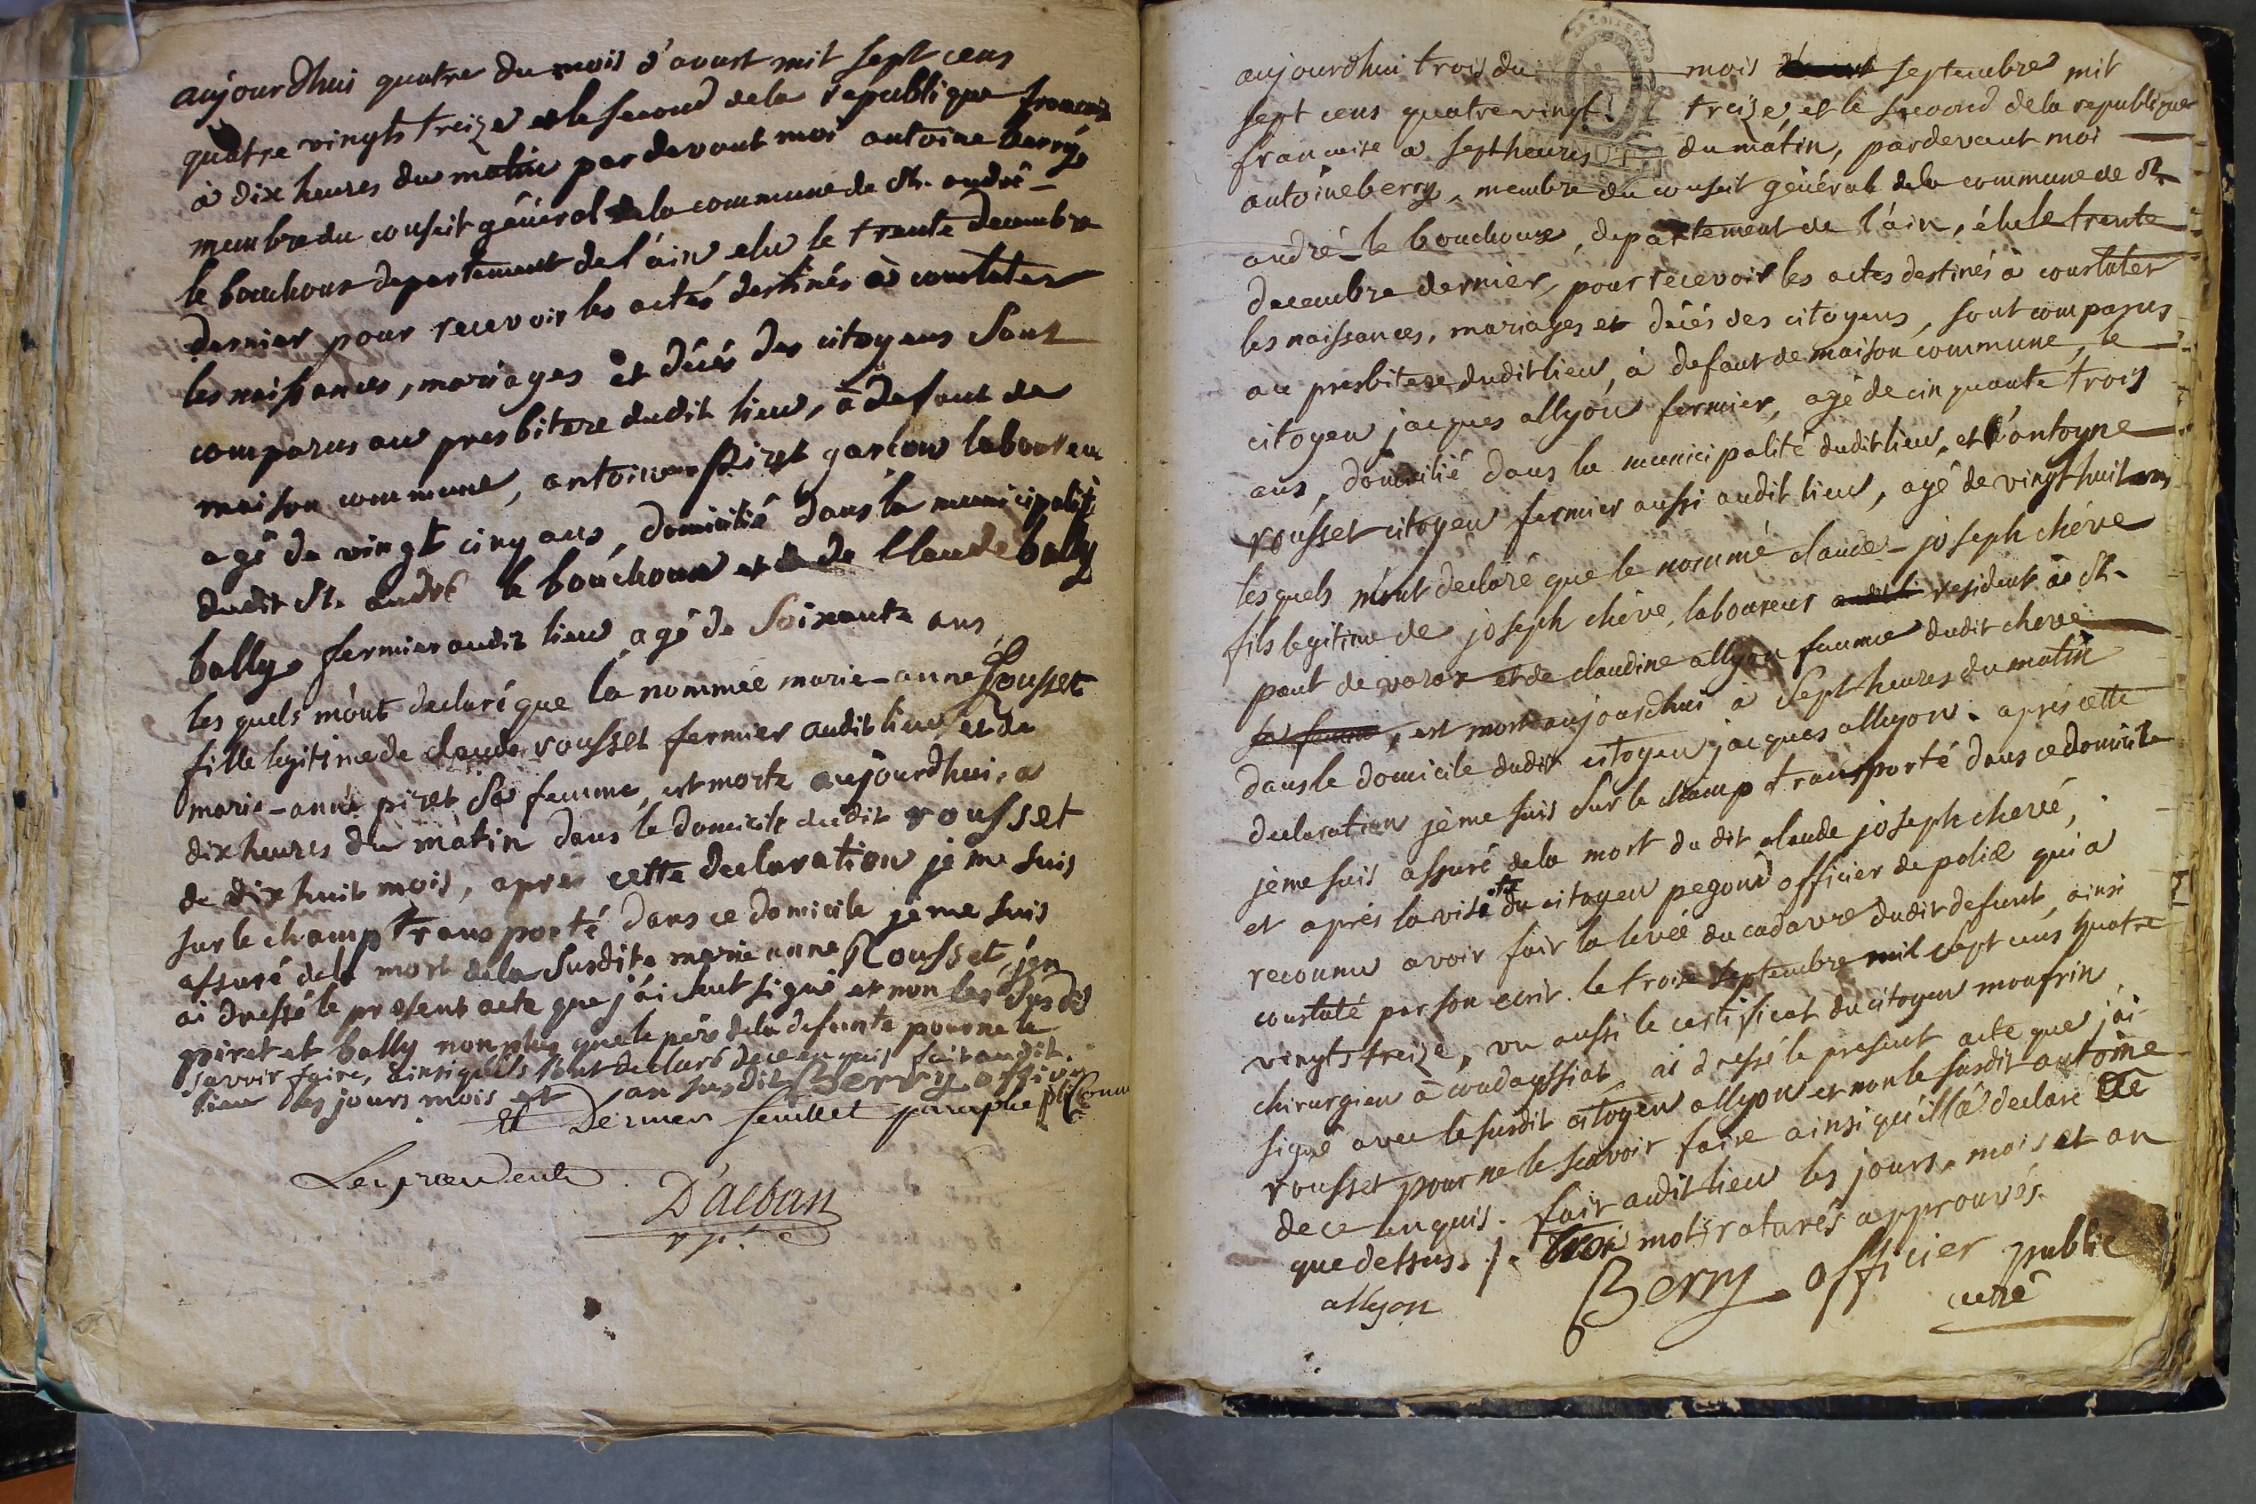 aujourdhui quatre du mois d'aoust mil sept cens
quatre vingts treize et le second de la republique francaise
à dix heures du matin pardevant moi antoine berry
membre du conseil général de la commune de St. andré-
le bouchoux departement de l'ain elu le trente decembre
dernier pour recevoir les actes destinés à constater
les naissances, mariages et décés des citoyens sont
comparus au presbitere dudit lieu, à defaut de
maison commune, antoine Piret garcon laboureur
agé de vingt cinq ans, domicilié dans la municipalité
dudit St. andré le bouchoux et de Claude bally
bally fermier audit lieu agé de soixante ans,
les quels m'ont declaré que la nommée marie-anne Rousset
fille legitime de claude rousset fermier audit lieu et de
marie-anne piret sa femme, est morte aujourdhui, a
dix heures du matin dans le domicile dudit rousset
de dix huit mois, apres cette declaration je me suis
sur le champ transporté dans ce domicile je me suis
assuré de la mort de la susdite marie anne Rousset, j'en
ai dressé le present acte que j'ai seul signé et non les susdits
piret et bally non plus que le père de la defunte pour ne le
savoir faire, ainsi qu'ils l'ont declaré de ce enquis fait audit
lieu les jours mois et an susdit Berry officier
Et Dernier feuillet paraphé
Le president
D'alban
vp.t
aujourdhui trois du mois septembre mil
sept cens quatre vingt treize, et le second de la republique
francaise a sept heures du matin, pardevant moi
antoine berry, membre du conseil général de la commune de St.
andré-le bouchoux, departement de l'ain, élu le trente
decembre dernier, pour recevoir les actes destinés à constater
les naissances, mariages et décés des citoyens, sont comparus
au presbitere dudit lieu, à defaut de maison commune, le
citoyen jacques allyon fermier, agé de cinquante trois
ans, domicilié dans la municipalité dudit lieu, et antoyne
rousset citoyen fermier aussi audit lieu, agé de vingt huit ans
les quels m'ont declaré que le nommé claude-joseph chéve
fils legitime de joseph chéve, laboureur resident à St.
paul de varax et de claudine allyon femme dudit cheve
sa femme, est mort aujourdhui a sept heures du matin
dans le domicile dudit citoyen jacques allyon. après cette
declaration je me suis sur le champ transporté dans ce domicile
je me suis assuré de la mort du dit claude joseph chevé,
et après la visite du citoyen pegoud officier de police qui a
reconnu avoir fait la levée du cadavre dudit defunt, ainsi
constaté par son ecrit. le trois septembre mil sept cens quatre
vingts treize, vu aussi le certificat du citoyen monfrin
chirurgien à condayssiat, ai dressé le present acte que j'ai
signé avec le susdit citoyen allyon et non le susdit antoine
rousset pour ne le scavoir faire ainsi qu'il l'a declaré
de ce enquis. fait audit lieu les jours, mois et an
que dessus. /. trois mots raturés approuvés.
allyon Berry officier public
curé